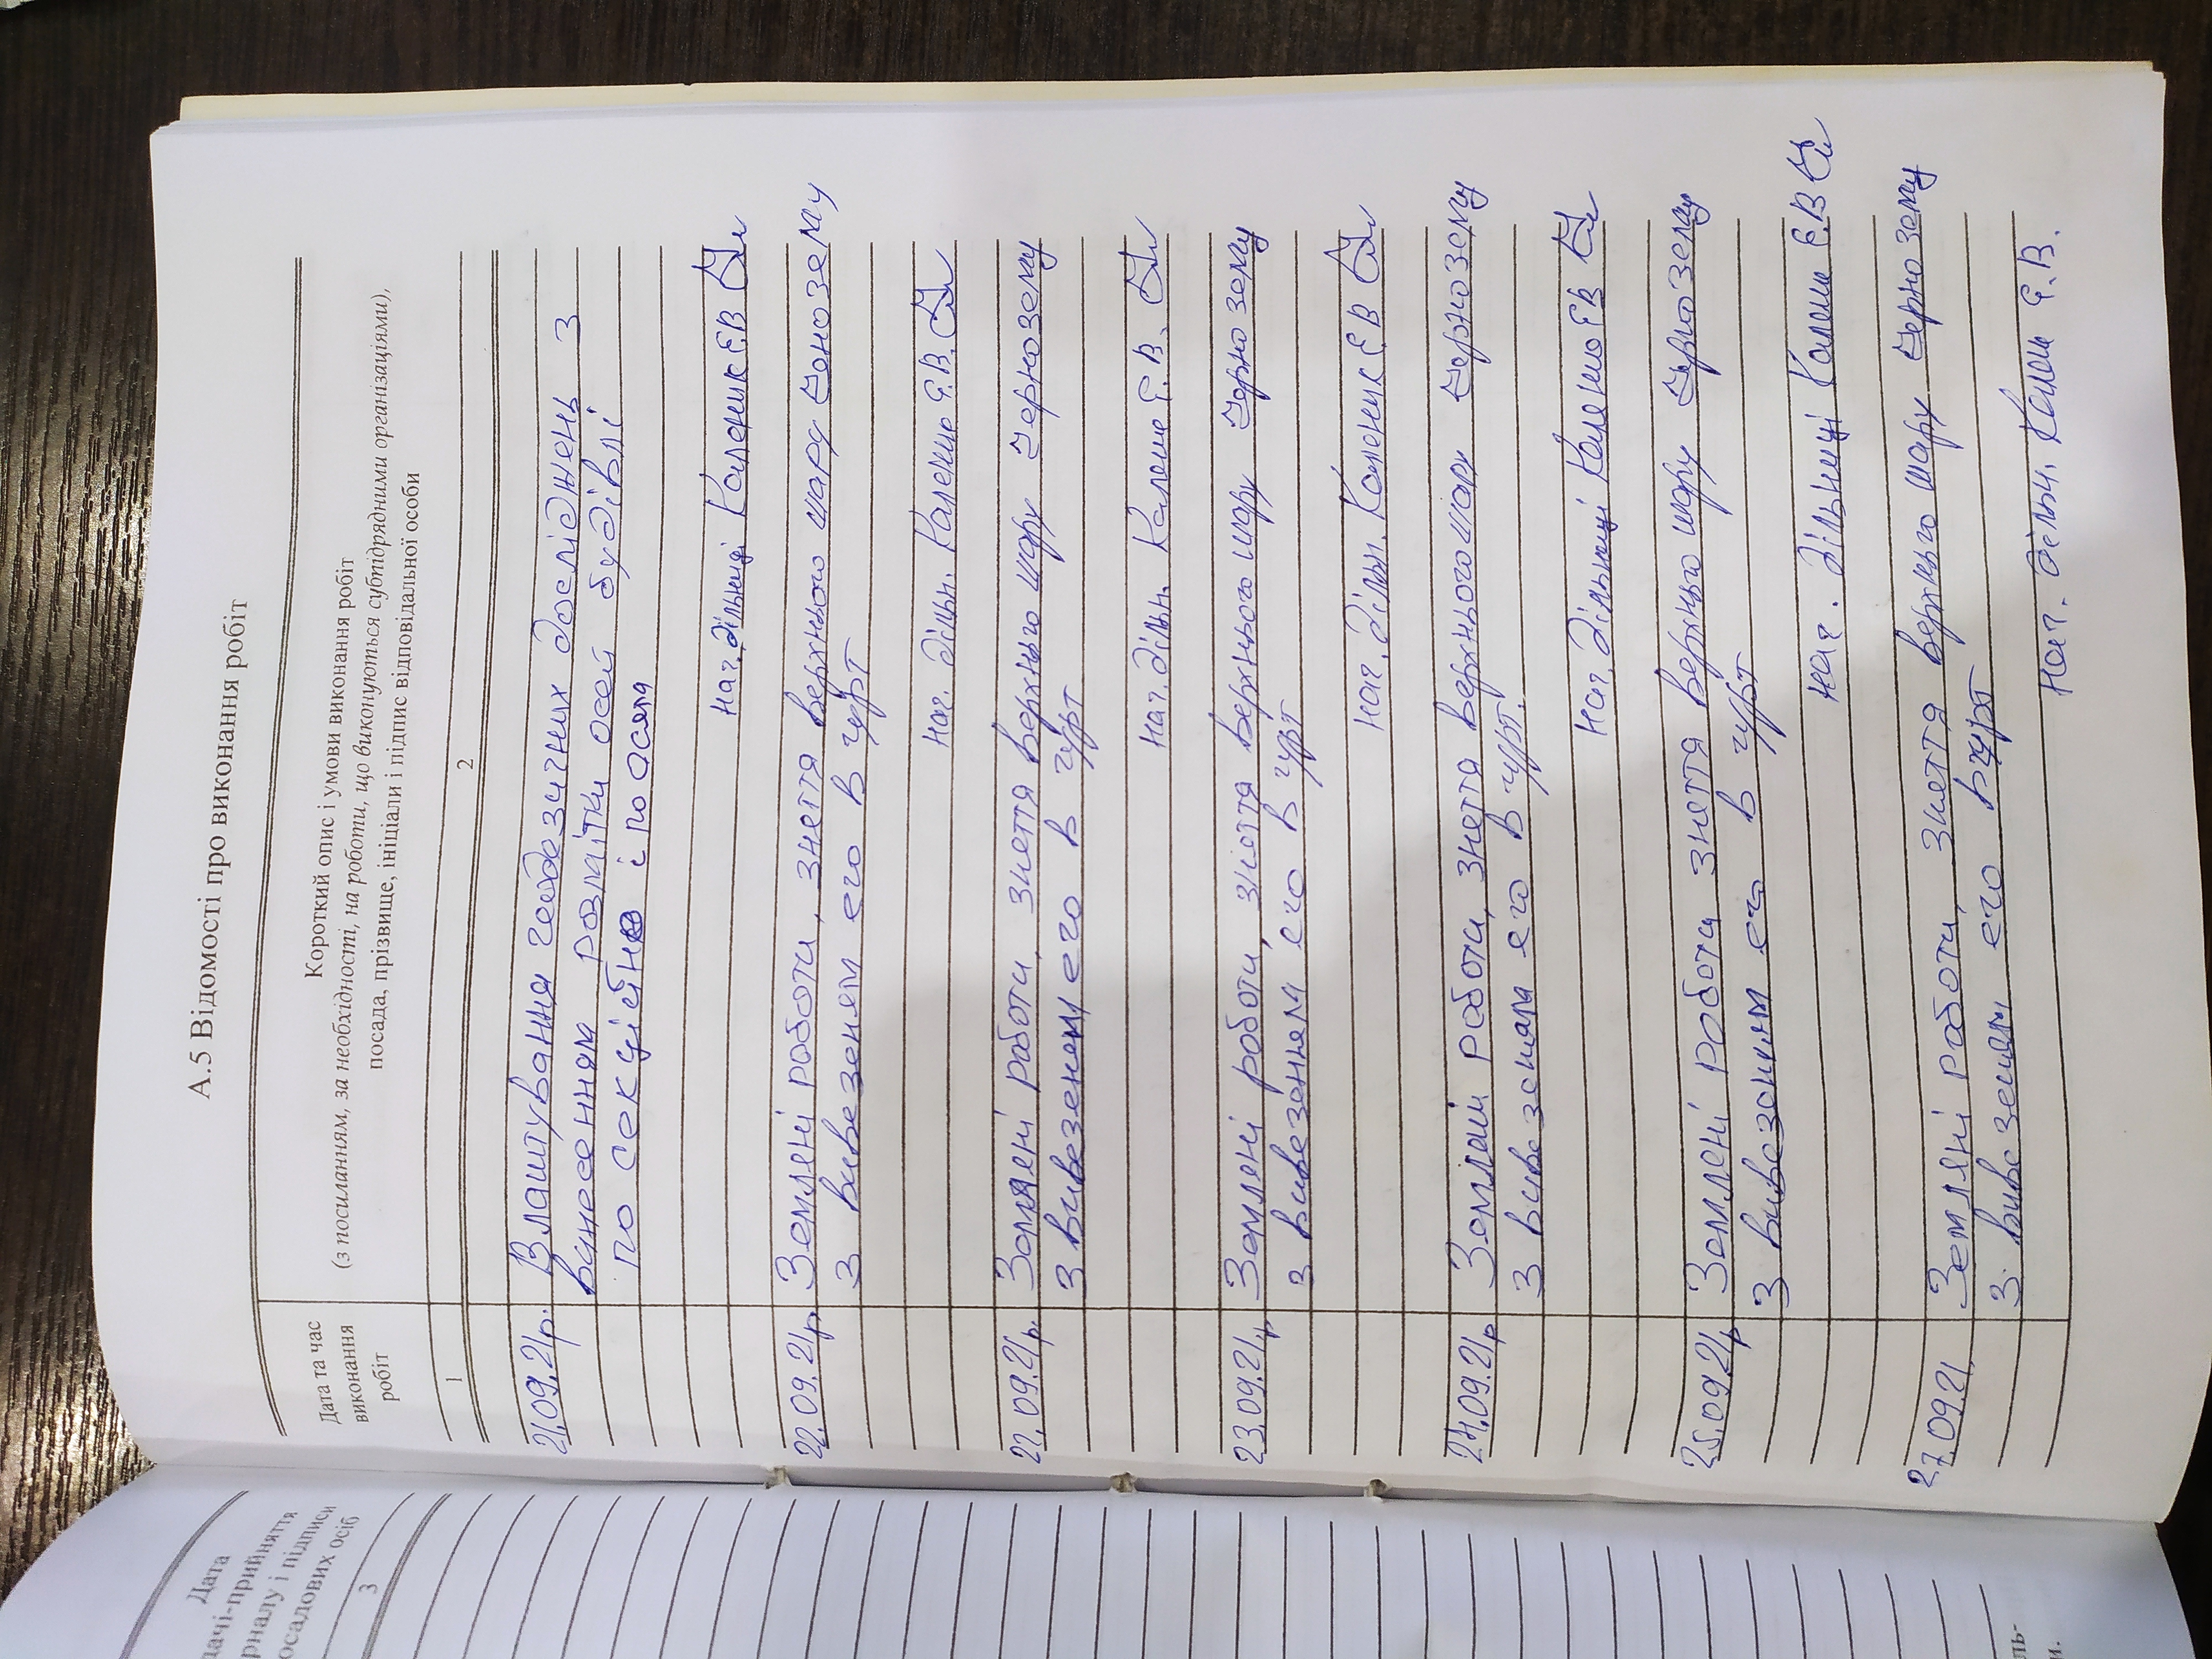 А.5 Відомості про виконання робіт
Дата та час
виконання
робіт
Короткий опис і умови виконання робіт
(з посиланням, за необхідності, на роботи, що виконуються субпідрядними організаціями),
посада, прізвище, ініціали і підпис відповідальної особи
1
2
21.09.21р. Влаштування геодезичних досліджень з
винесенням розмітки осей будівлі
по секційно і по осям
нач. дільниці Каленик Є.В
22.09.21р. Земляні роботи, зняття верхнього шару чонозему
з вивезеням его в гурт
нач. дільн. Є.В.
22.09.21р. Земляні роботи, зняття верхнього шару чернозему
з вивезенем его в гурт
нач. дільн. Є.В.
23.09.21р Земляні роботи, зняття верхнього шару чернозему
з вивезенням его в гурт
нач. дільн. Каленик Є В
24.09.21р Земляні роботи, зняття верхнього шару чернозему
з вивезеням его в гурт.
нач. дільниці Є В
25.09.21р Земляні роботи зняття верхнього шару чернозему
з вивезеням его в гурт
нач. дільниці Є.В
27.09.21 Земляні роботи, зняття верхнього шару чернозему
з вивезеням его в гурт
нач. дільн. Є.В.
Дата
дачі-прийняття
рналу і підписи
осадових осіб
3